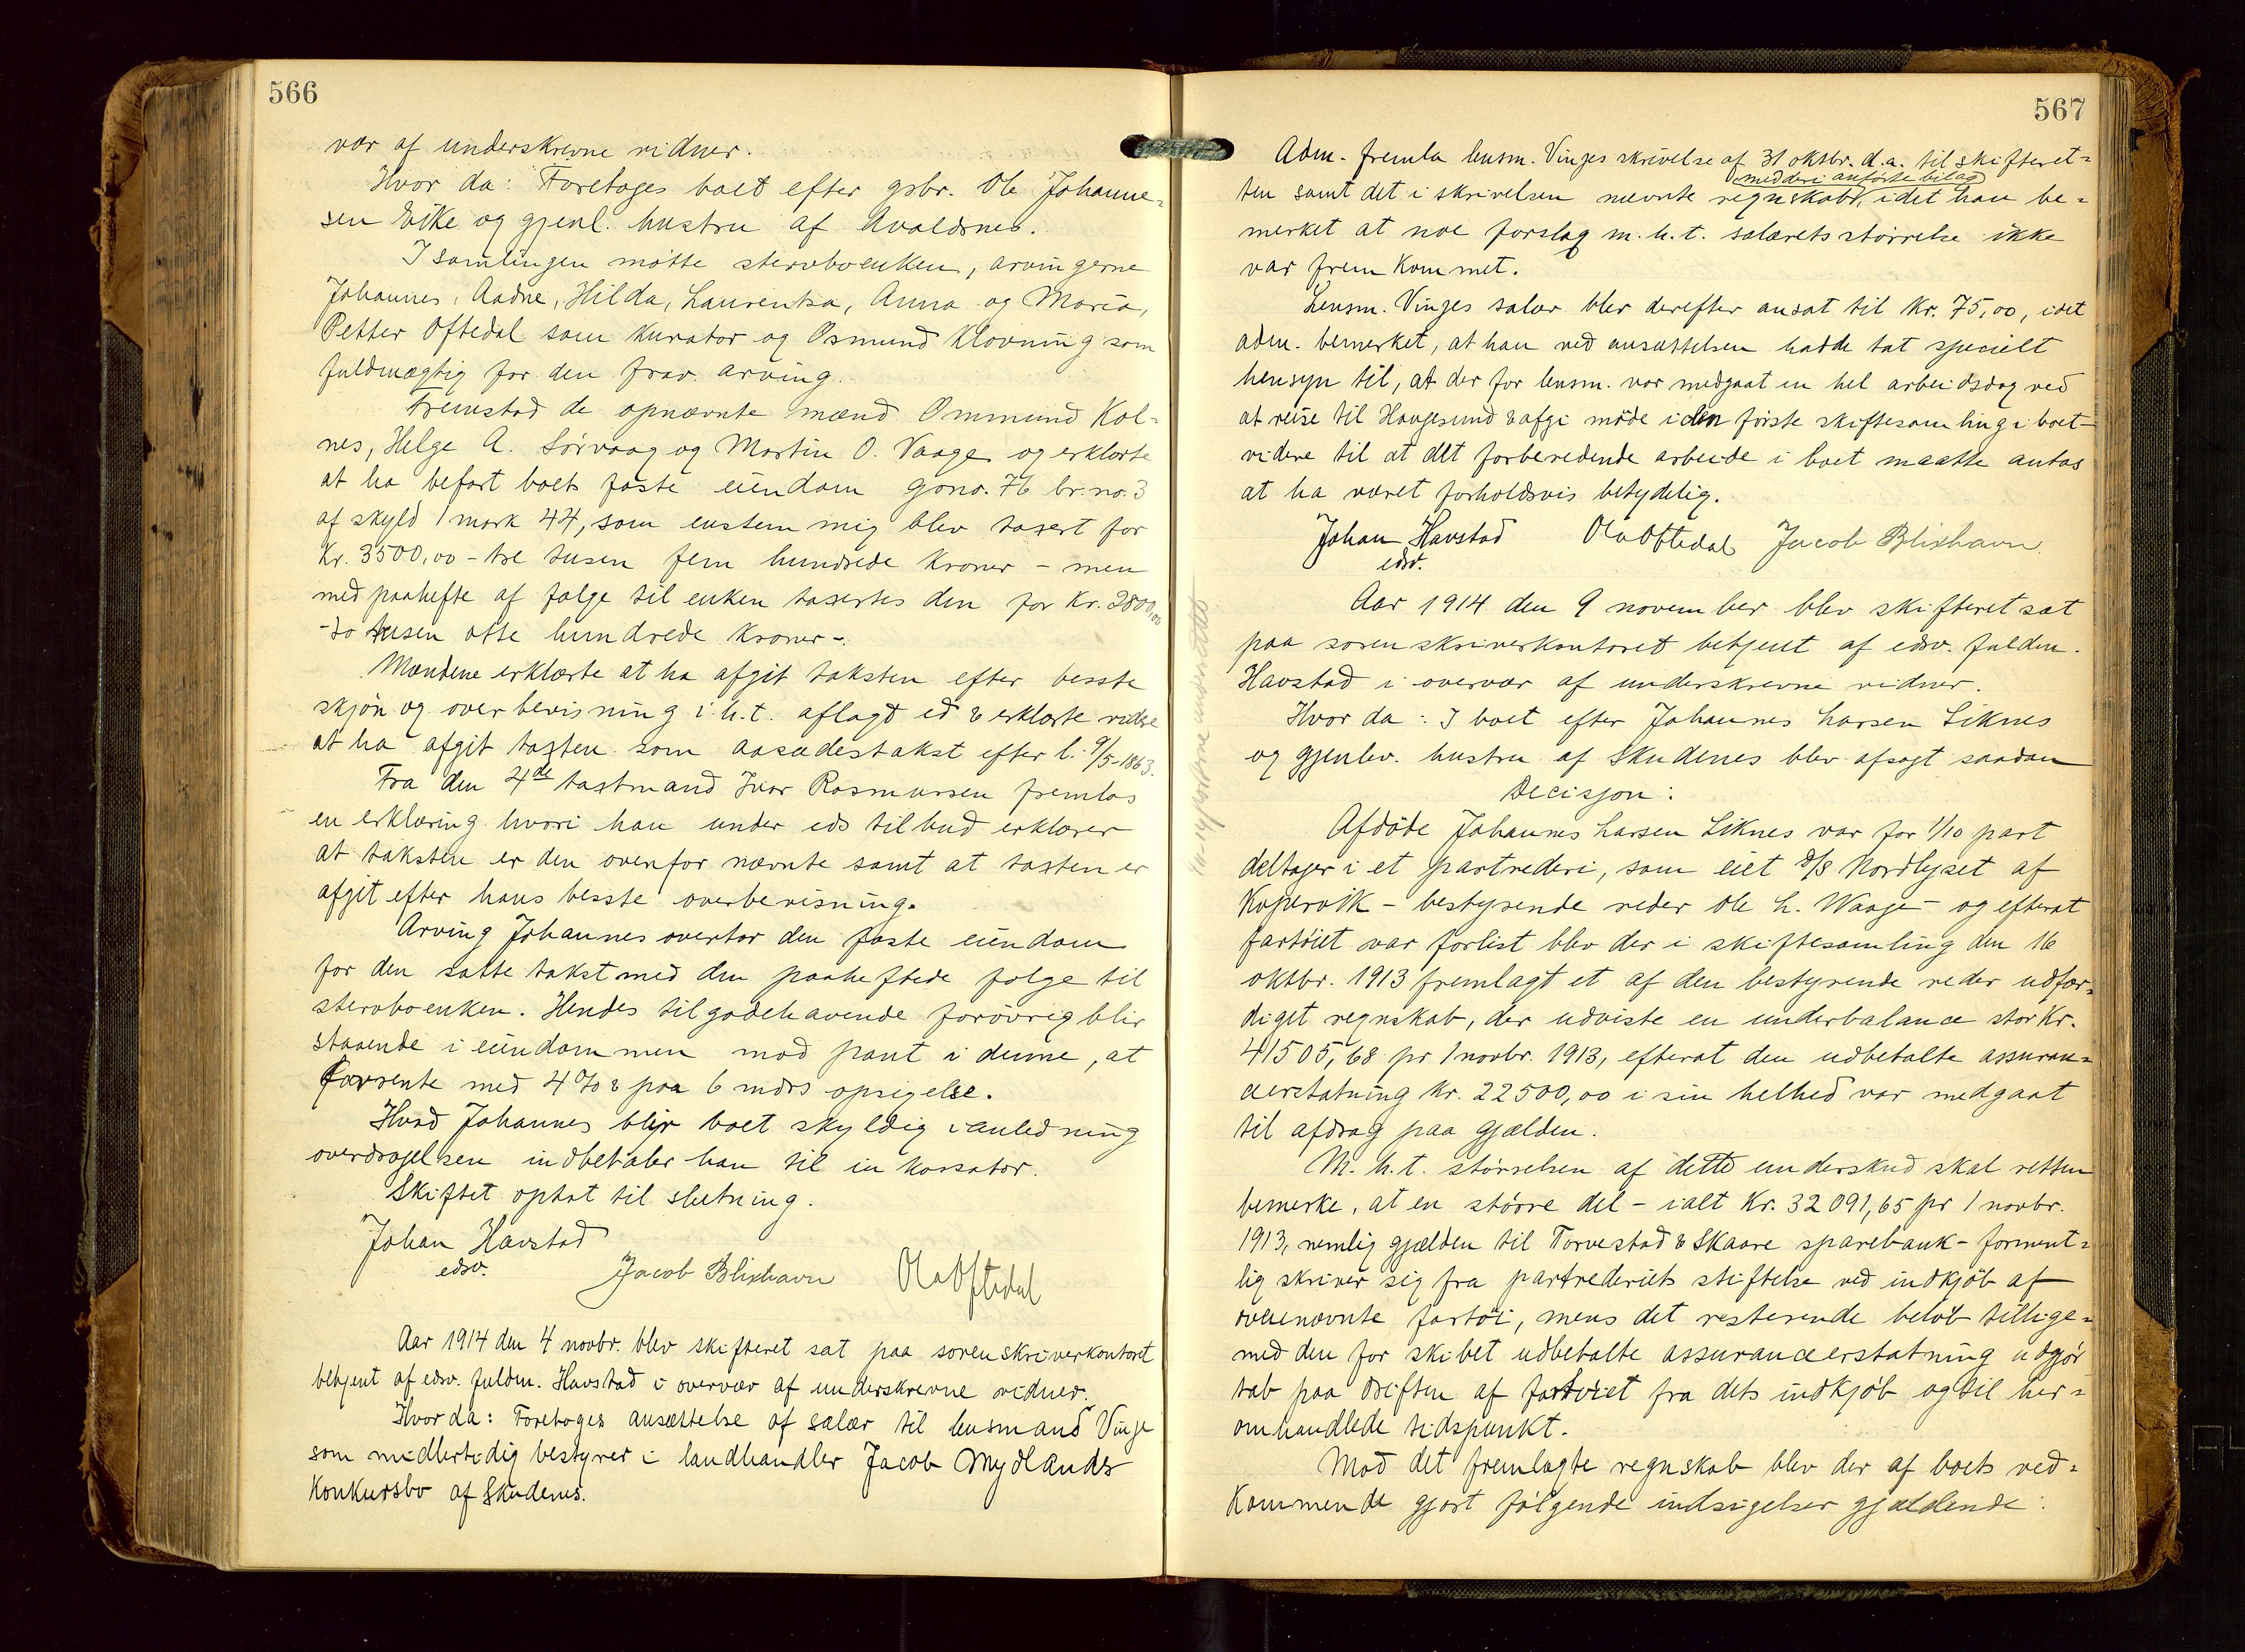 566
vær af underskrevne vidner.
Hvor da: Foretoges boet efter gbr. Ole Johanne-
sen Eike og gjenl. hustru af Avaldsnes.
I samlingen møtte stervboenken, arvingerne
Johannes, Aadne, Hilda, Laurentsa, Anna og Maria,
Petter Oftedal som kurator og Osmund Klovning som
fuldmægtig for den fravr. arving.
Fremstod de opnævnte mænd Ommund Kol-
nes, Helge A. Sørvaag og Martin O. Vaage og erklærte
at ha befart boets faste eiendom gsno. 76 br. no. 3
af skyld 1 mark 44, som enstemmig blev taxert for
Kr. 3500,00 - tre tusen fem hundrede kroner - men
med paahefte af følge til enken taxertes den for Kr. 2800,00
- to tusen otte hundrede kroner -.
Mændene erklærte at ha afgit taksten efter besste
skjøn og overbevisning i h.t. aflagd ed & erklærte vidre
at ha afgit taxten som aasædestakst efter l. 9/5-1863.
Fra den 4de taxtmand Ivar Rasmussen fremlas
en erklæring hvori han under eds tilbud erklærer
at taksten er den ovenfor nævnte samt at taxten er
afgit efter hans besste overbevisning.
Arving Johannes overtar den faste eiendom
for den satte takst med den paaheftede følge til
stervboenken. Hendes tilgodehavende forøvrig blir
staaende i eiendommen mod pant i denne, at
forrente med 4 % & paa 6 mdrs opsigelse.
Hvad Johannes blir boet skyldig i anledning
overdragelsen indbetaler han til inkassator.
Skiftet optat til slutning.
Johan Havstad
edsv.
Jacob Blixhavn Ola Oftedal
Aar 1914 den 4 novbr. blev skifteret sat paa sorenskriverkontoret
betjent af edsv. fuldm. Havstad i overvær af underskrevne vidner.
Hvor da: Foretoges ansættelse af salær til lensmand Vinje
som midlertidig bestyrer i landhandler Jacob Mydlands
Konkursbo af Skudenes.
567
Adm. fremla lensm. Vinjes skrivelse af 31 oktbr. d.a. til skifteret-
med deri anførte bilag
ten samt det i skrivelsen nævnte regnskab, idet han be-
merket at noe forslag m.h.t. salærets størrelse ikke
var fremkommet.
Lensm. Vinjes salær blev derefter ansat til kr. 75,00, idet
adm. bemerket, at han ved ansættelsen hadde tat specielt
hensyn til, at der for lensm. var medgaat en hel arbeidsdag ved
at reise til Haugesund & afgi møde i den første skiftesamling i boet -
videre til at det forberedende arbeide i boet maatte antas
at ha været forholdsvis betydelig.
Johan Havstad Ola Oftedal Jacob Blixhavn.
edsv.
Aar 1914 den 9 november blev skifteret sat
paa sorenskriverkontoret betjent af edsv. fuldm.
Havstad i overvær af underskrevne vidner.
Hvor da: I boet efter Johannes Larsen Liknes
og gjenlev. hustru af Skudenes blev afsagt saadan
Decisjon:
Afdøde Johannes Larsen Liknes var for 1/10 part
deltager i et partrederi, som eiet D/S Nordlyset af
Kopervik - bestyrende reder Ole L. Waage - og efterat
fartøiet var forlist blev der i skiftesamling den 16
oktbr. 1913 fremlagt et af den bestyrende reder udfær-
diget regnskab, der udviste en underbalance stor Kr.
41505,68 pr 1 novbr. 1913, efterat den udbetalte assuran-
ceerstatning kr. 22500,00 i sin helhed var medgaat
til afdrag paa gjælden.
M.h.t. størrelsen af dette underskud skal retten
bemerke, at en større del - ialt Kr. 32091,65 pr 1 novbr.
1913, nemlig gjælden til Torvestad & Skaare sparebank - forment-
lig skriver sig fra partrederiets stiftelse ved indkjøb af
ovennævnte fartøi, mens det resterende beløb tillige-
med den for skibet udbetalte assuranceerstatning udgjør
tab paa driften af fartøiet fra dets indkjøb og til her-
omhandlede tidspunkt.
Mod det fremlagte regnskab blev der af boets ved-
kommende gjort følgende indsigelser gjældende: